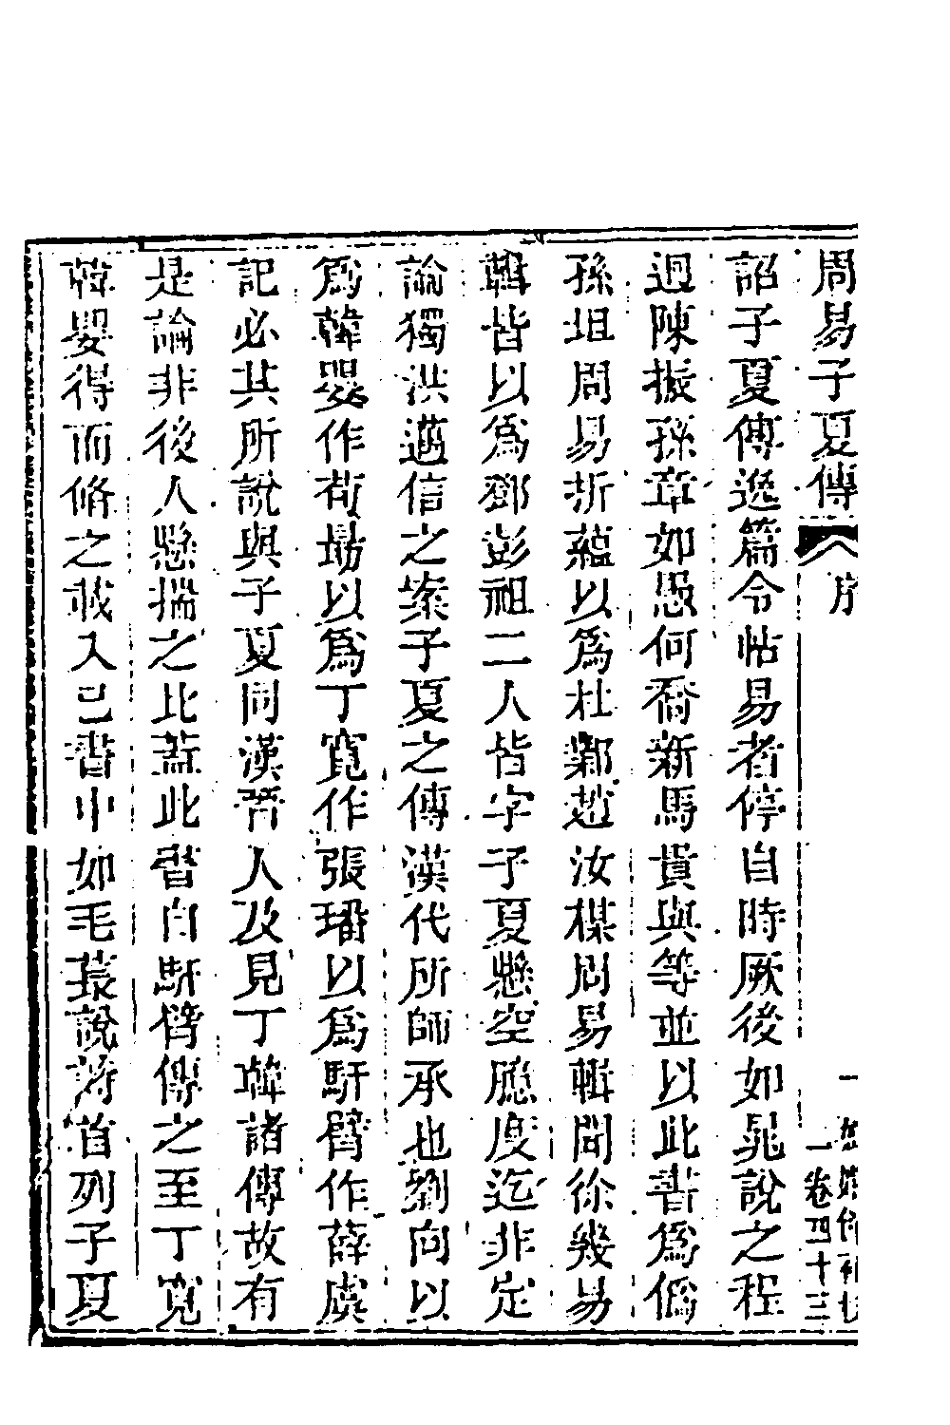 周易子夏傳 序
一
一卷四十三
詔子夏傳逸篇令帖易者停自時厥後如晁說之程
迥陳振孫章如愚何喬新馬貴與等並以此書爲僞
孫坦周易折蘊以爲杜鄴趙汝楳周易輯聞徐幾易
輯皆以爲鄧彭祖二人皆字子夏懸空臆度迄非定
論獨洪邁信之案子夏之傳漢代所師承也劉向以
爲韓嬰作荀勗以爲丁寬作張璠以爲馯臂作薛虞
記必其所說與子夏同漢晉人及見丁韓諸傳故有
是論非後人懸揣之比蓋此書自馯臂傳之至丁寬
韓嬰得而脩之載入己書中如毛萇說詩首列子夏